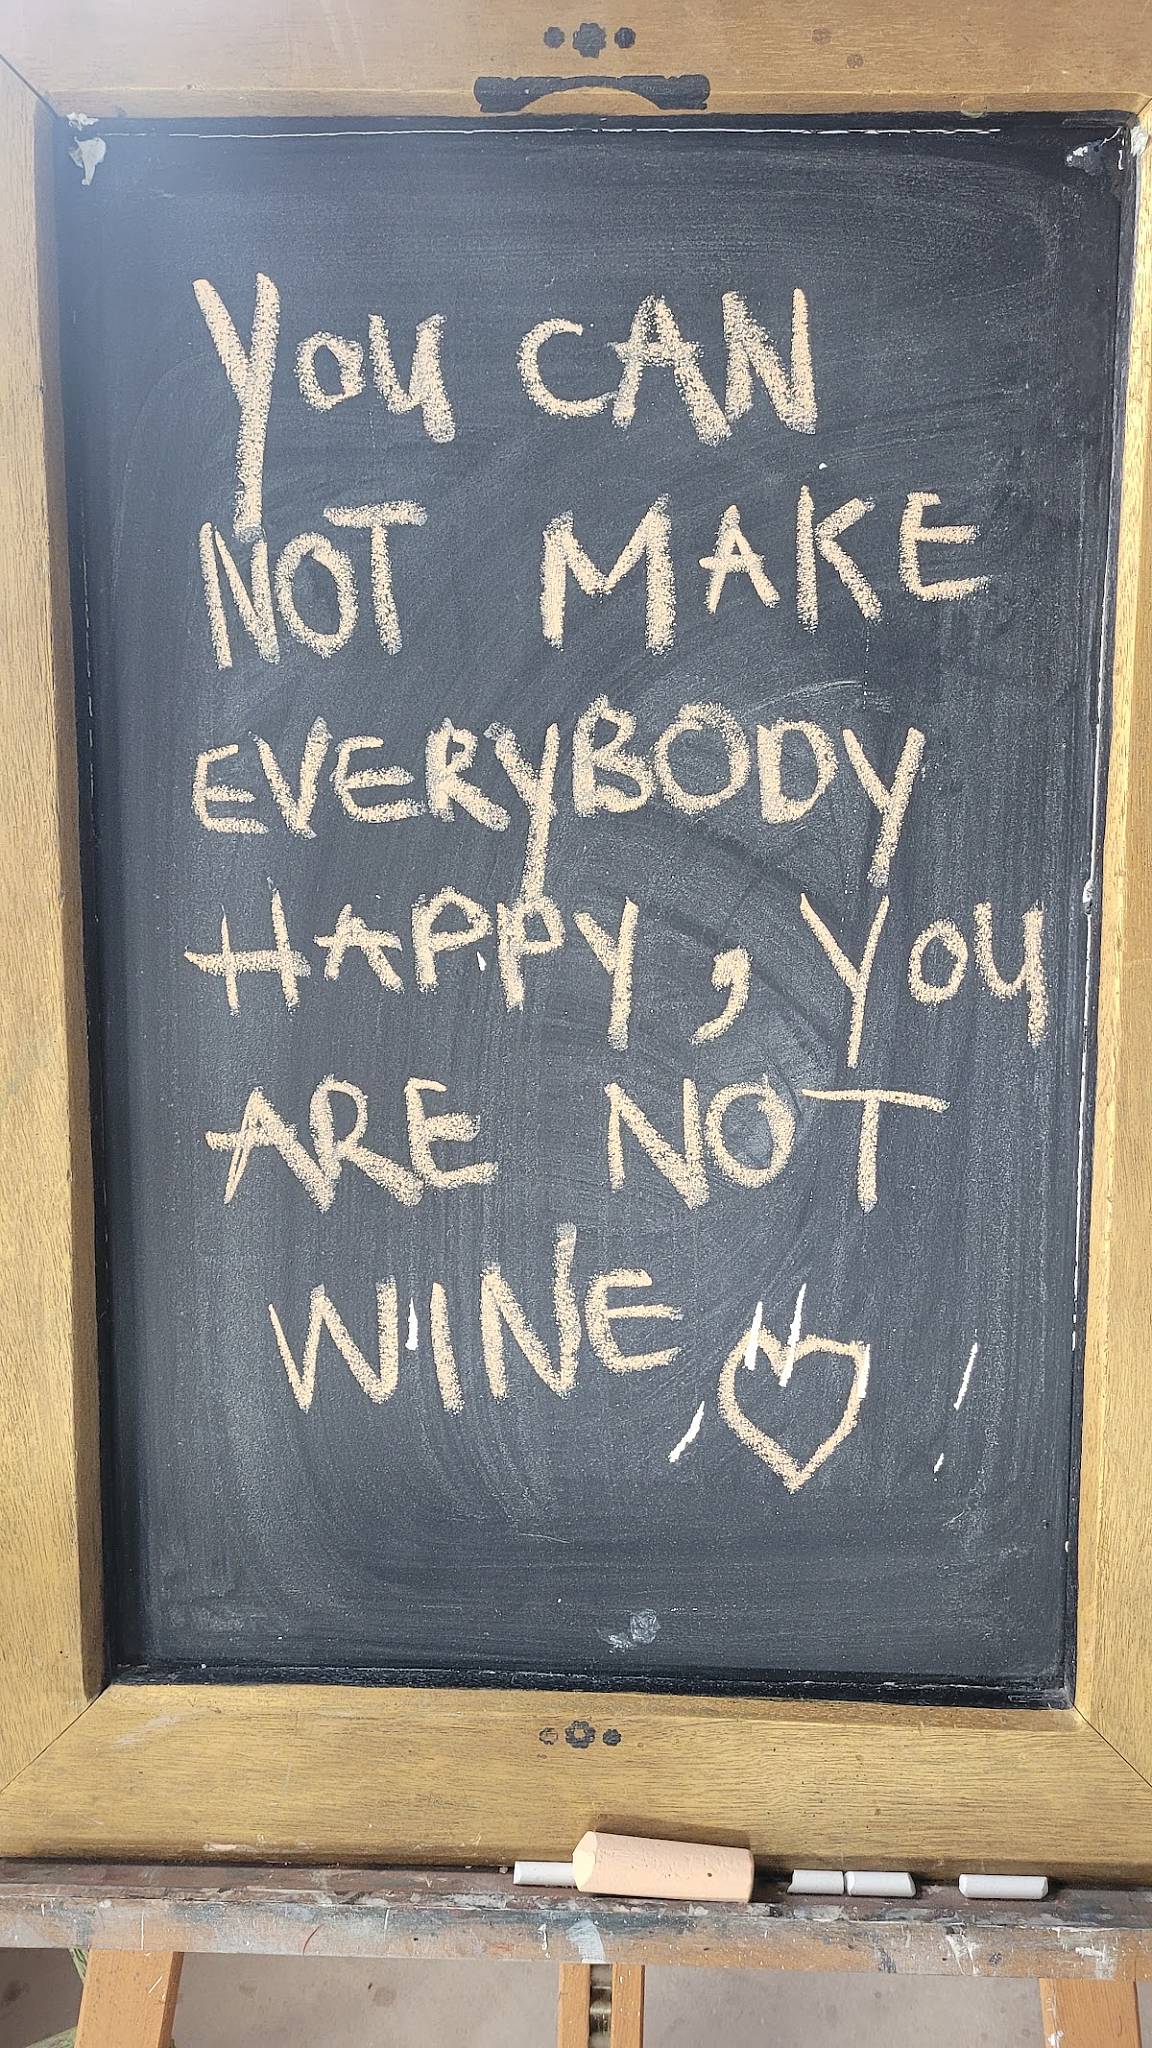 You CAN
NOT MAKE
EVERYBODY
HAPPY, You
ARE NOT
WINE